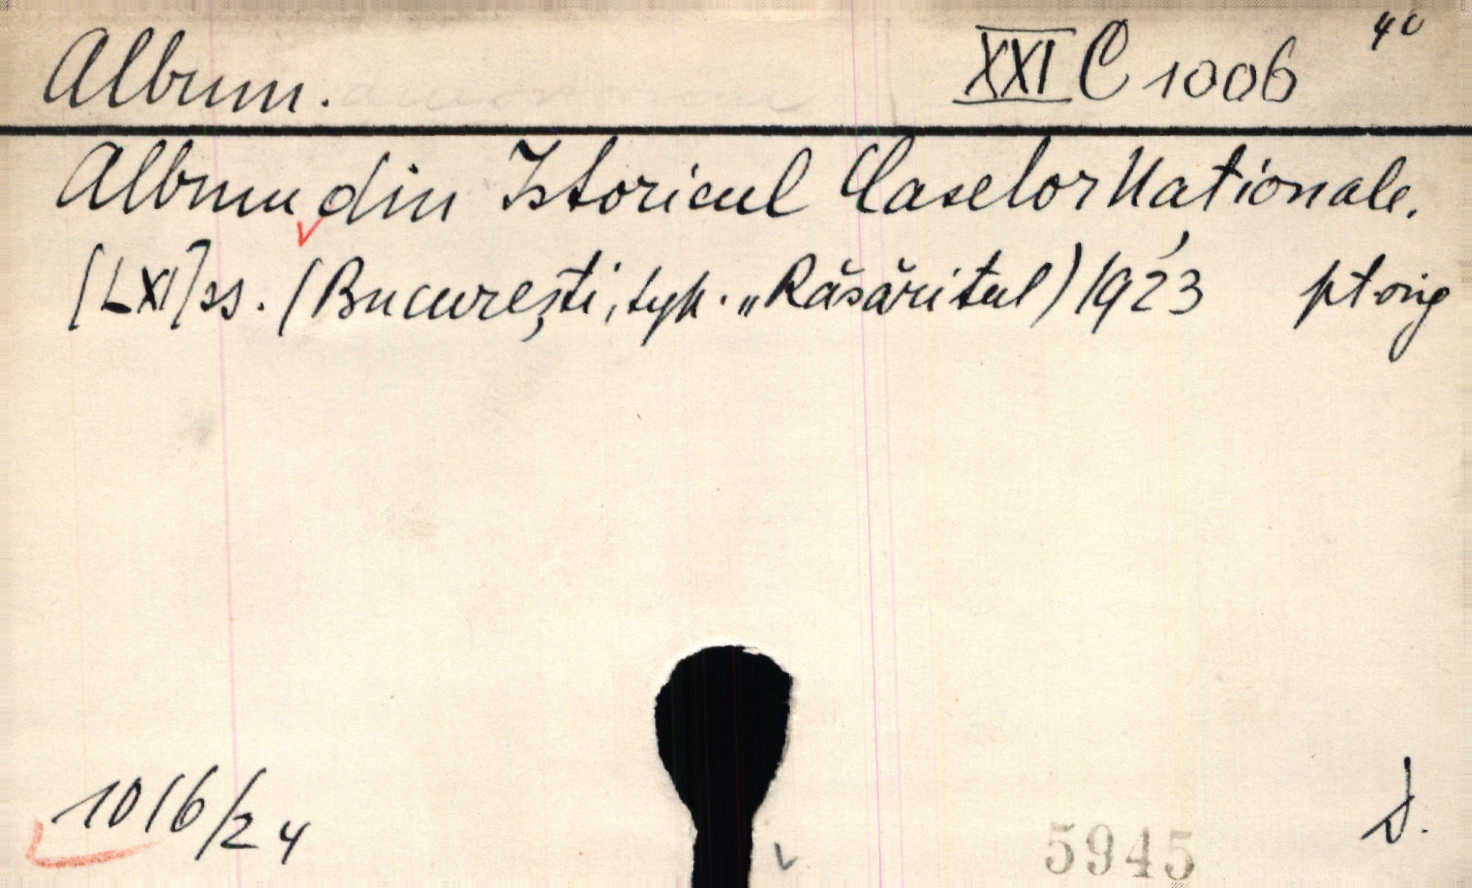 Album. XXI C 1006 40
Album din Istoricul Caselor Naționale.
[LXI] ss. (București, typ. „Răsăritul) 1923 pt orig
1016/24
5945
D.